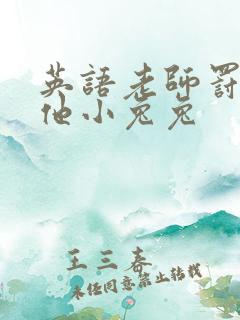 英語老師罰
他小兔兔
王三春
未经同意禁止转载